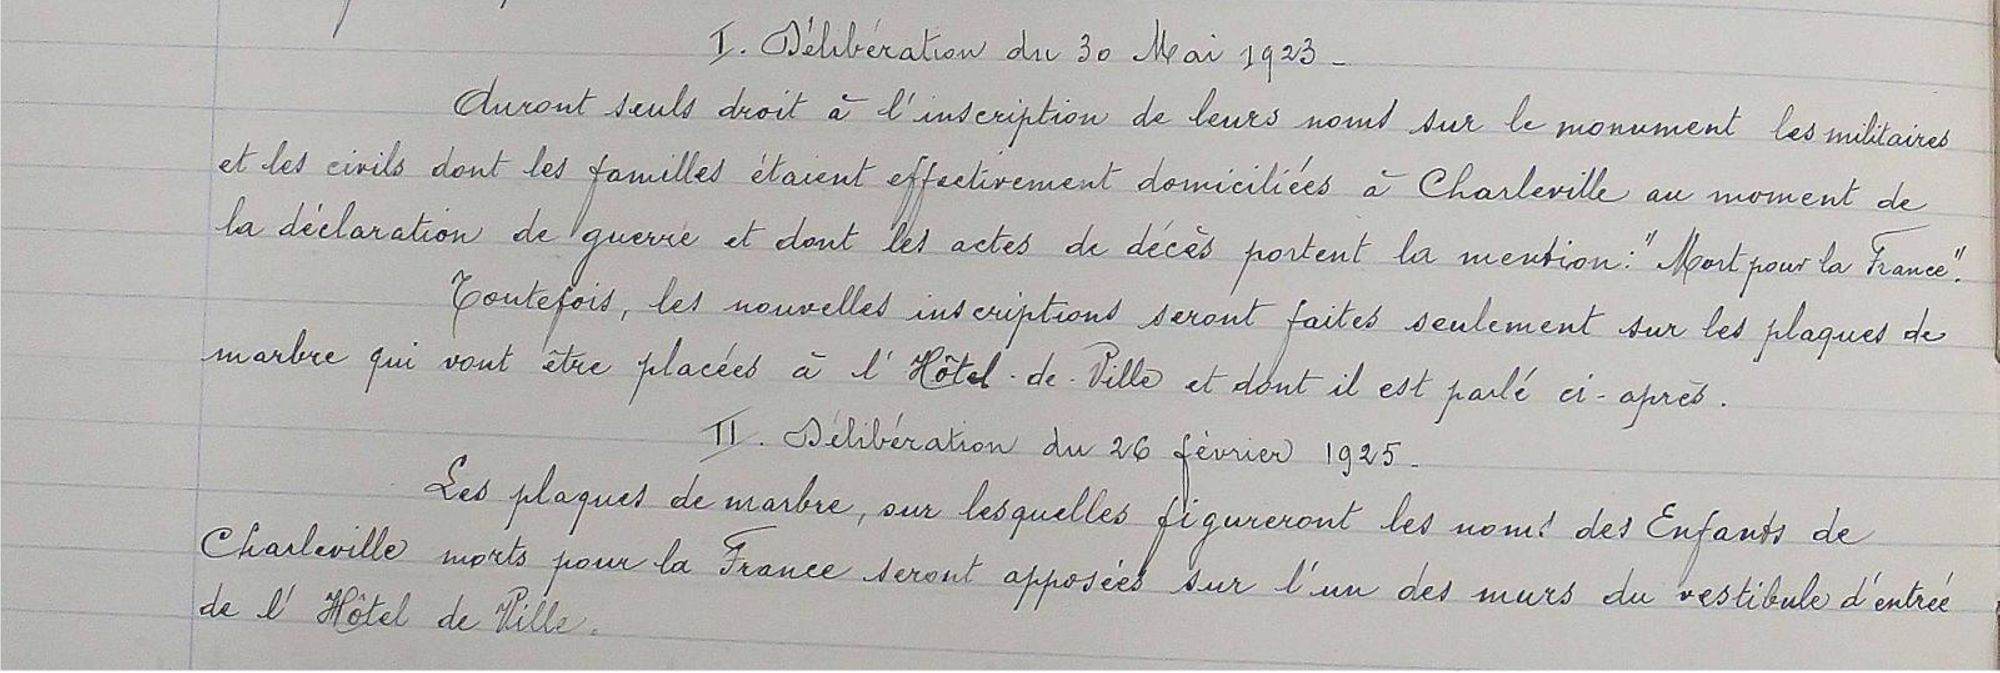 I. Délibération du 30 Mai 1923 -
Auront seuls droit à l'inscription de leurs noms sur le monument les militaires
et les civils dont les familles étaient effectivement domiciliées à Charleville au moment de
la déclaration de guerre et dont les actes de décès portent la mention : "Mort pour la France".
Toutefois, les nouvelles inscriptions seront faites seulement sur les plaques de
marbre qui vont être placées à l'Hôtel-de-Ville et dont il est parlé ci-après.
II. Délibération du 26 février 1925 -
Les plaques de marbre, sur lesquelles figureront les noms des Enfants de
Charleville morts pour la France seront apposées sur l'un des murs du vestibule d'entrée
de l'Hôtel de Ville.